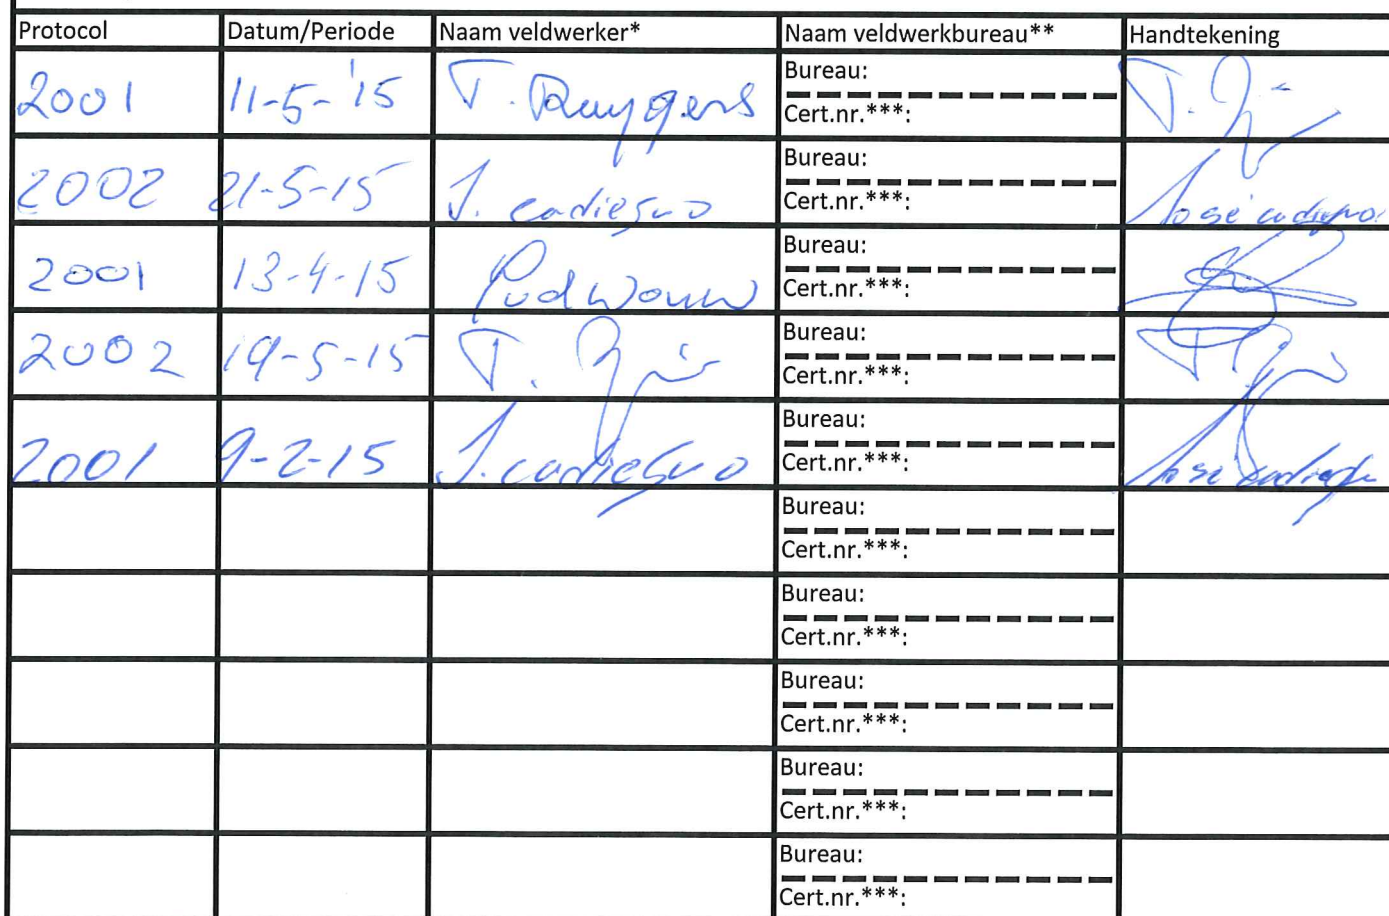 Protocol Datum/Periode Naam veldwerker* Naam veldwerkbureau** Handtekening
2001 11-5-'15 T. Ruygers Bureau:
Cert.nr.***:
2002 21-5-15 J. Bureau:
Cert.nr.***:
2001 13-4-15 Bureau:
Cert.nr.***:
2002 19-5-15 T. Bureau: T.
Cert.nr.***:
2001 9-2-15 J. Bureau:
Cert.nr.***:
Bureau:
Cert.nr.***:
Bureau:
Cert.nr.***:
Bureau:
Cert.nr.***:
Bureau:
Cert.nr.***:
Bureau:
Cert.nr.***: